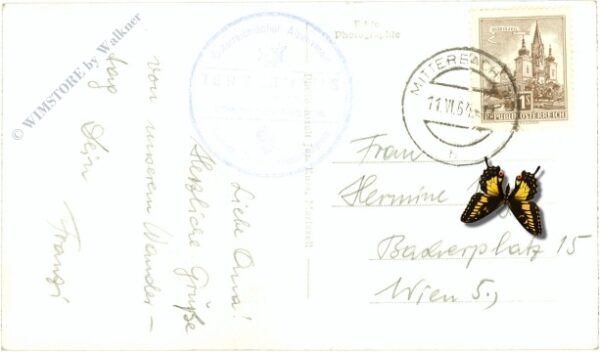 © WIMSTORE by Walkner
Liebe Oma!
Herzliche Grüße
von unserem Wander-
tag
Dein
Franzi
Echte
Photographie
MITTERBACH
11.VI.64
1S
REPUBLIK ÖSTERREICH
Frau
Hermine
Bacherplatz 15
Wien 5.,